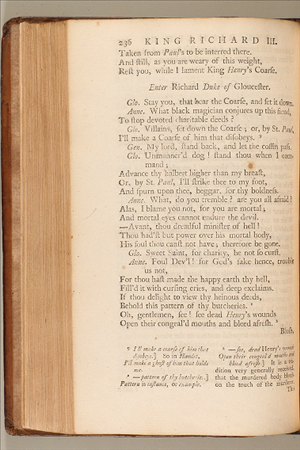 236 KING RICHARD III.
Taken from Paul's to be interred there.
And still, as you are weary of this weight,
Rest you, while I lament King Henry's Coarse.
Enter Richard Duke of Gloucester.
Glo. Stay you, that bear the Coarse, and set it down.
Anne. What black magician conjures up this fiend,
To stop devoted charitable deeds?
Glo. Villains, set down the Coarse; or, by St. Paul,
I'll make a Coarse of him that disobeys. ³
Gen. My lord, stand back, and let the coffin pass.
Glo. Unmanner'd dog! stand thou when I com-
mand;
Advance thy halbert higher than my breast,
Or, by St. Paul, I'll strike thee to my foot,
And spurn upon thee, beggar, for thy boldness.
Anne. What, do you tremble? are you all afraid?
Alas, I blame you not, for you are mortal;
And mortal eyes cannot endure the devil.
—Avant, thou dreadful minister of hell!
Thou had'st but power over his mortal body,
His soul thou canst not have; therefore be gone.
Glo. Sweet Saint, for charity, be not so curst.
Anne. Foul Dev'l! for God's sake hence, trouble
us not,
For thou hast made the happy earth thy hell,
Fill'd it with cursing cries, and deep exclaims.
If thou delight to view thy heinous deeds,
Behold this pattern of thy butcheries. ⁴
Oh, gentlemen, see! see dead Henry's wounds
Open their congeal'd mouths and bleed afresh. ⁵
Blush,
³ I'll make a coarse of him that
disobeys.] So in Hamlet,
I'll make a ghost of him that
me.
⁴ —pattern of thy butcheries.]
Pattern is instance, or example.
⁵ —see, dead Henry's wounds
Open their congeal'd mouths and
bleed afresh.] It is a tra-
dition very generally received,
that the murdered body bleeds
on the touch of the murderer.